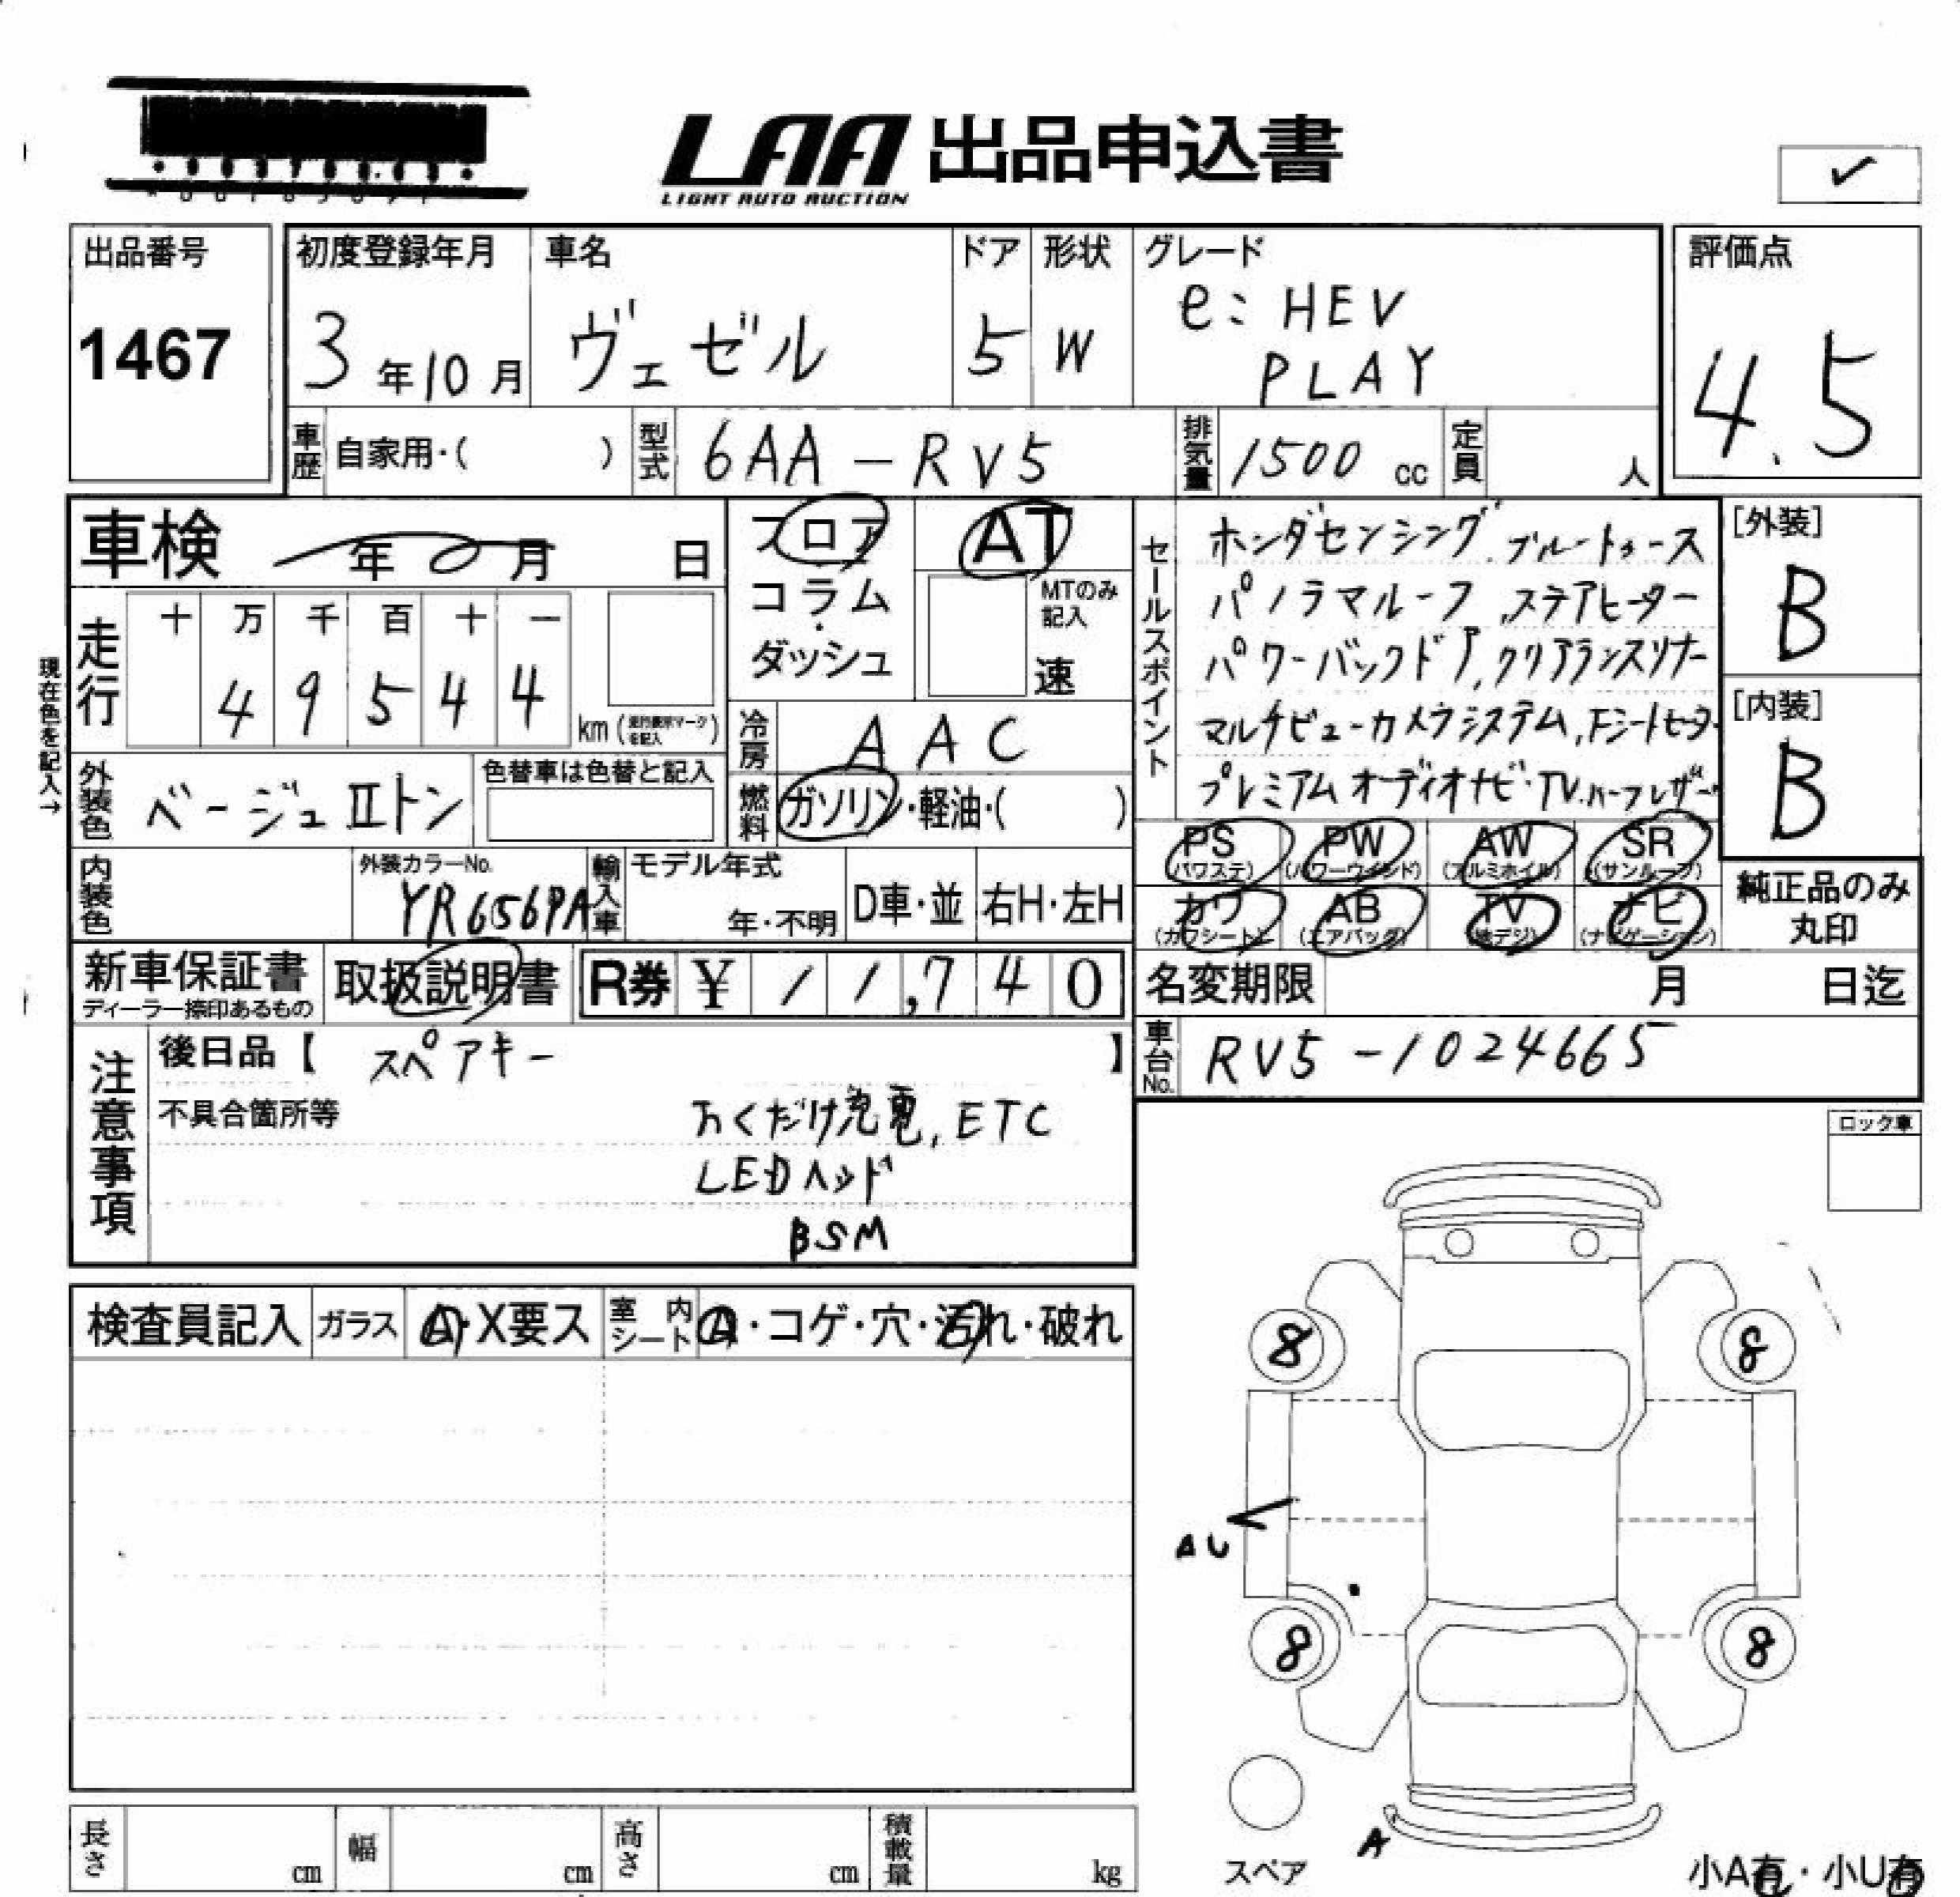 LAA 出品申込書
LIGHT AUTO AUCTION
✓
出品番号
1467
初度登録年月
3年10月
車名
ヴェゼル
ドア
5
形状
W
グレード
e:HEV
PLAY
評価点
4.5
車歴 自家用・( )
型式 6AA-RV5
排気量 1500 cc
定員 人
車検 年 月 日
フロア
コラム
・
ダッシュ
AT
MTのみ
記入
速
現在色を記入→
走行
十 万 千 百 十 一
4 9 5 4 4
km (走行表示マークを記入)
冷房 AAC
外装色 ベージュⅡトン
色替車は色替と記入
燃料 ガソリン・軽油・( )
セールスポイント
ホンダセンシング.ブルートゥース
パノラマルーフ,ステアヒーター
パワーバックドア,クリアランスソナー
マルチビューカメラシステム,Fシートヒーター
プレミアムオーディオナビ・TV.ハーフレザー
[外装]
B
[内装]
B
PS (パワステ)
PW (パワーウインド)
AW (アルミホイル)
SR (サンルーフ)
カワ (カワシート)
AB (エアバッグ)
TV (地デジ)
ナビ (ナビゲーション)
純正品のみ
丸印
内装色
外装カラーNo.
YR656PA
輸入車
モデル年式
年・不明
D車・並
右H・左H
新車保証書
ディーラー捺印あるもの
取扱説明書
R券 ¥ 11,740
名変期限 月 日迄
車台No. RV5-1024665
注意事項
後日品【 スペアキー 】
不具合箇所等
おくだけ充電,ETC
LEDヘッド
BSM
ロック車
検査員記入
ガラス A・X要ス
室内シート A・コゲ・穴・汚れ・破れ
8 8
AU
8 8
A
スペア
小A有・小U有
長さ cm
幅 cm
高さ cm
積載量 kg